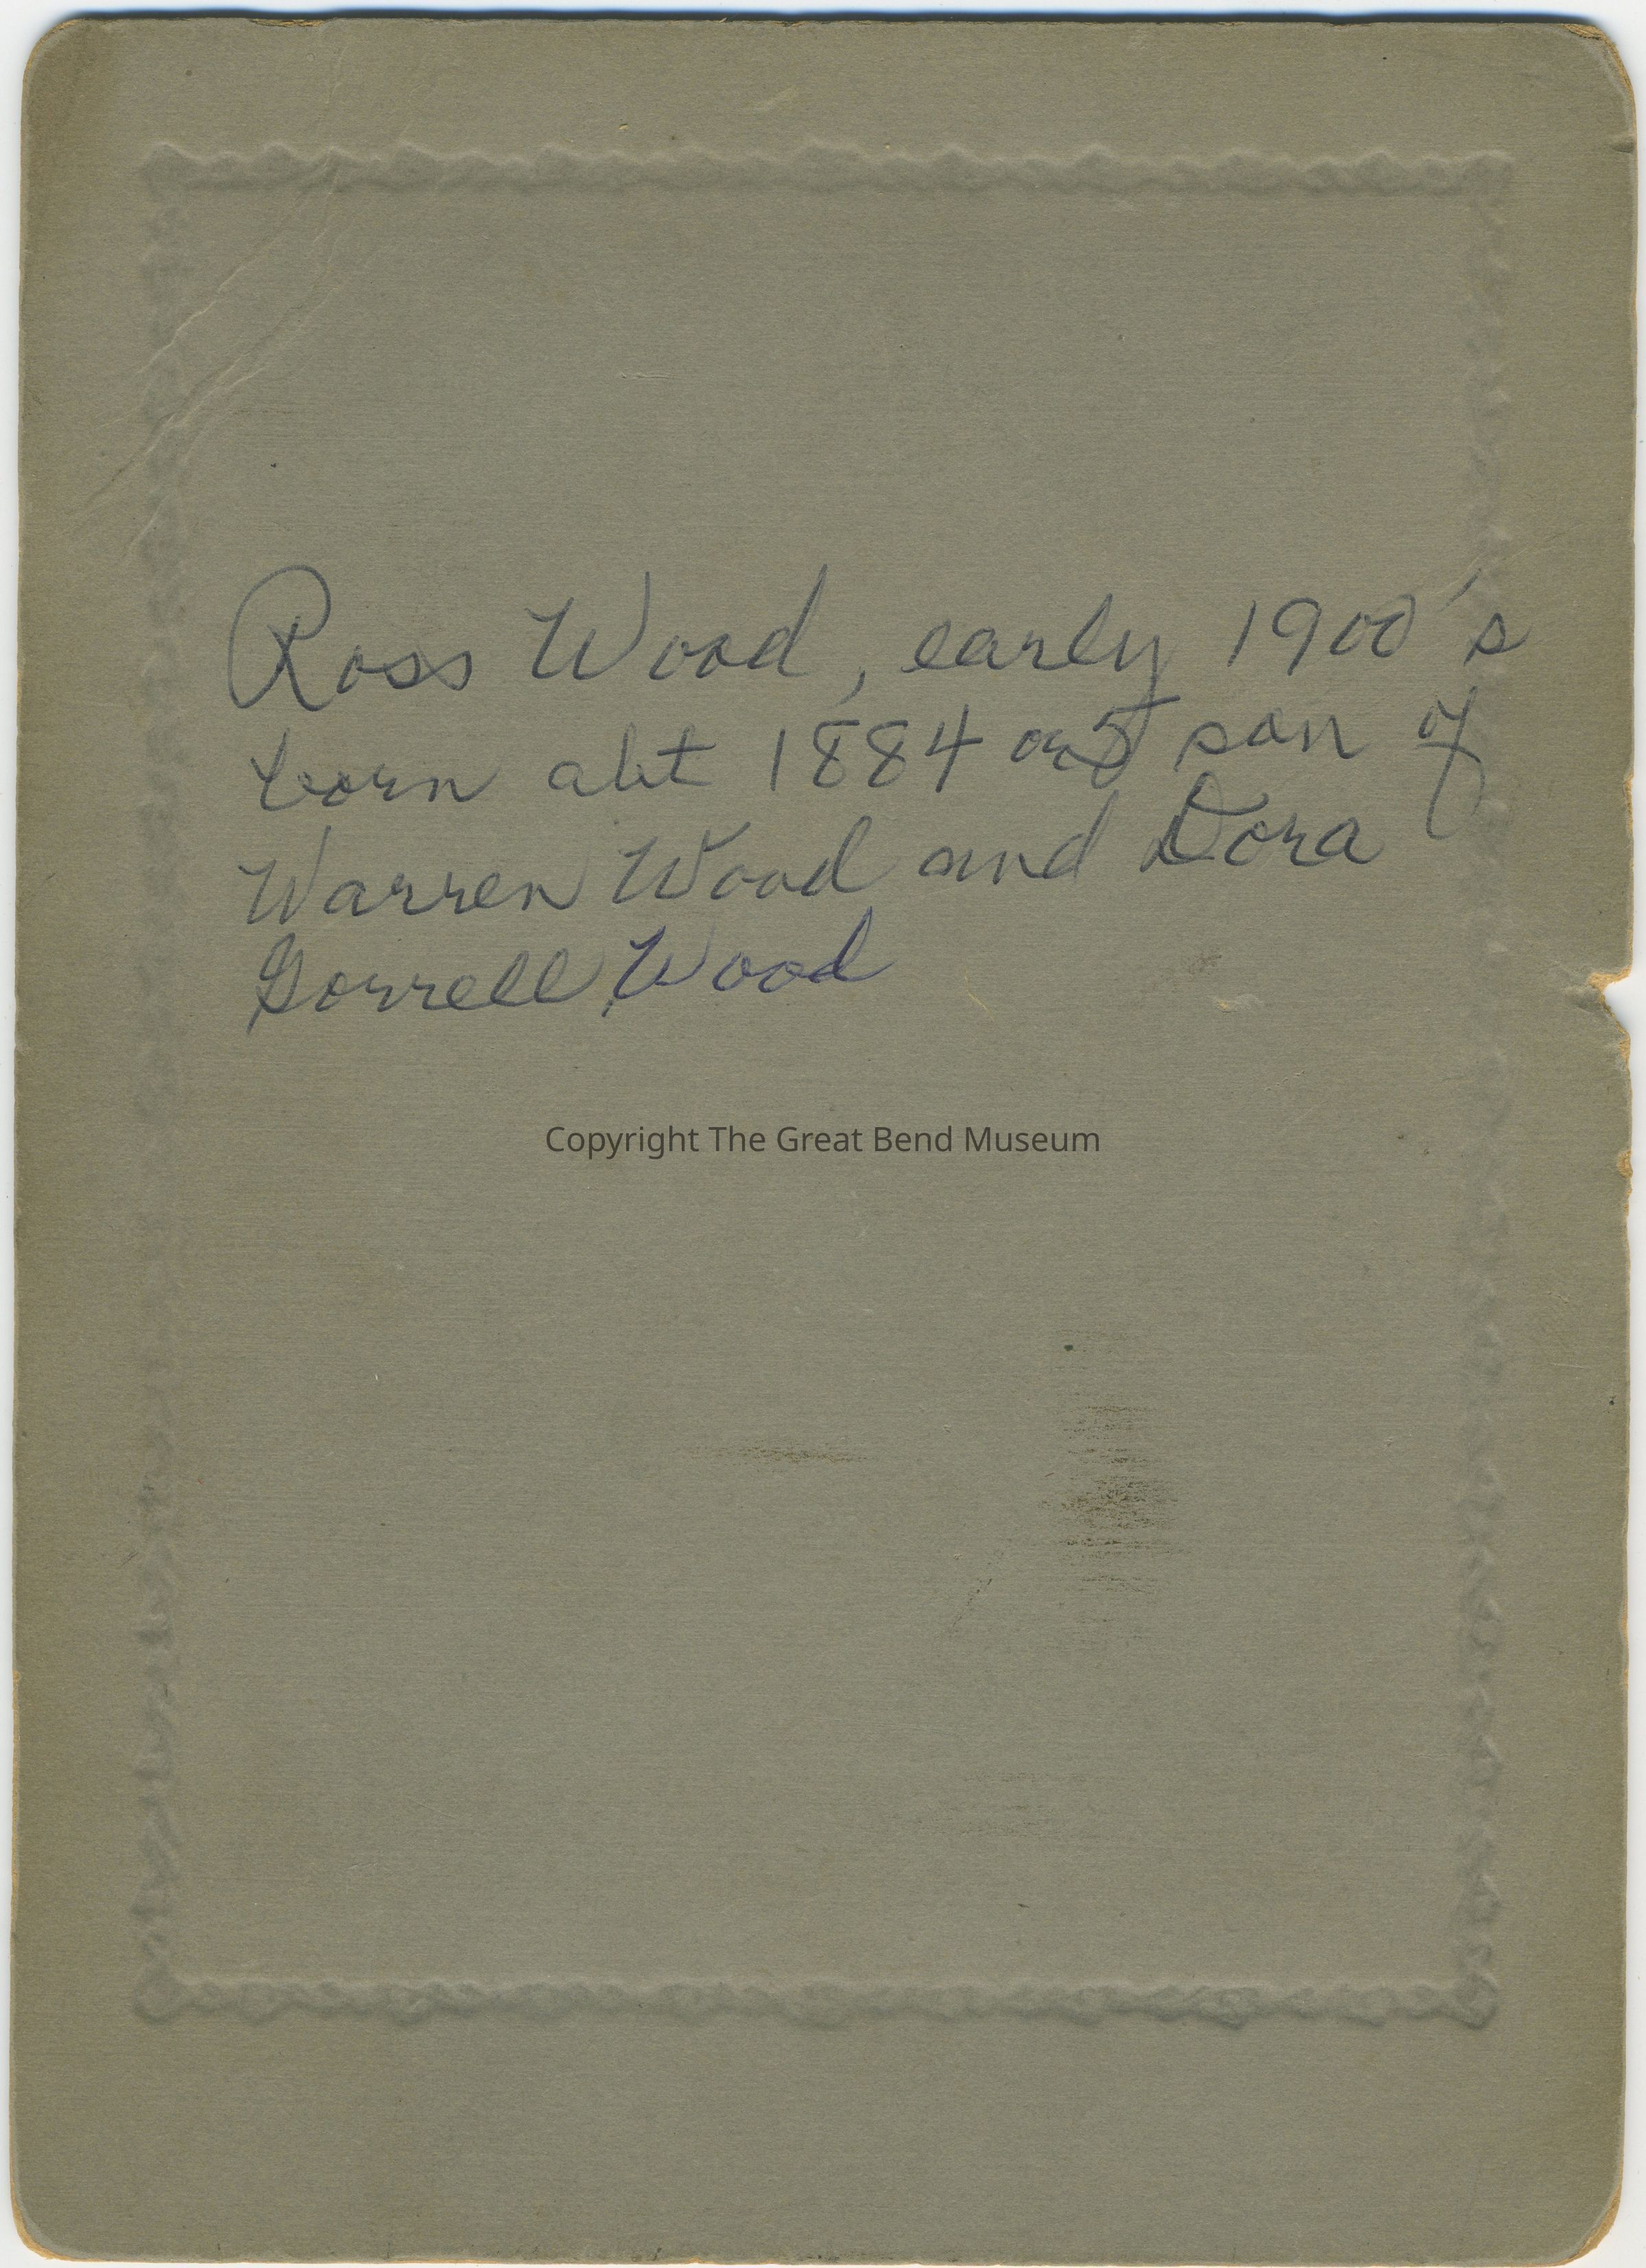 Ross Wood, early 1900's
born abt 1884 or 5 son of
Warren Wood and Dora
Gorrell Wood
Copyright The Great Bend Museum